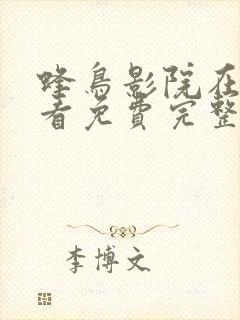 蜂鸟影院在
看免费完整
李博文